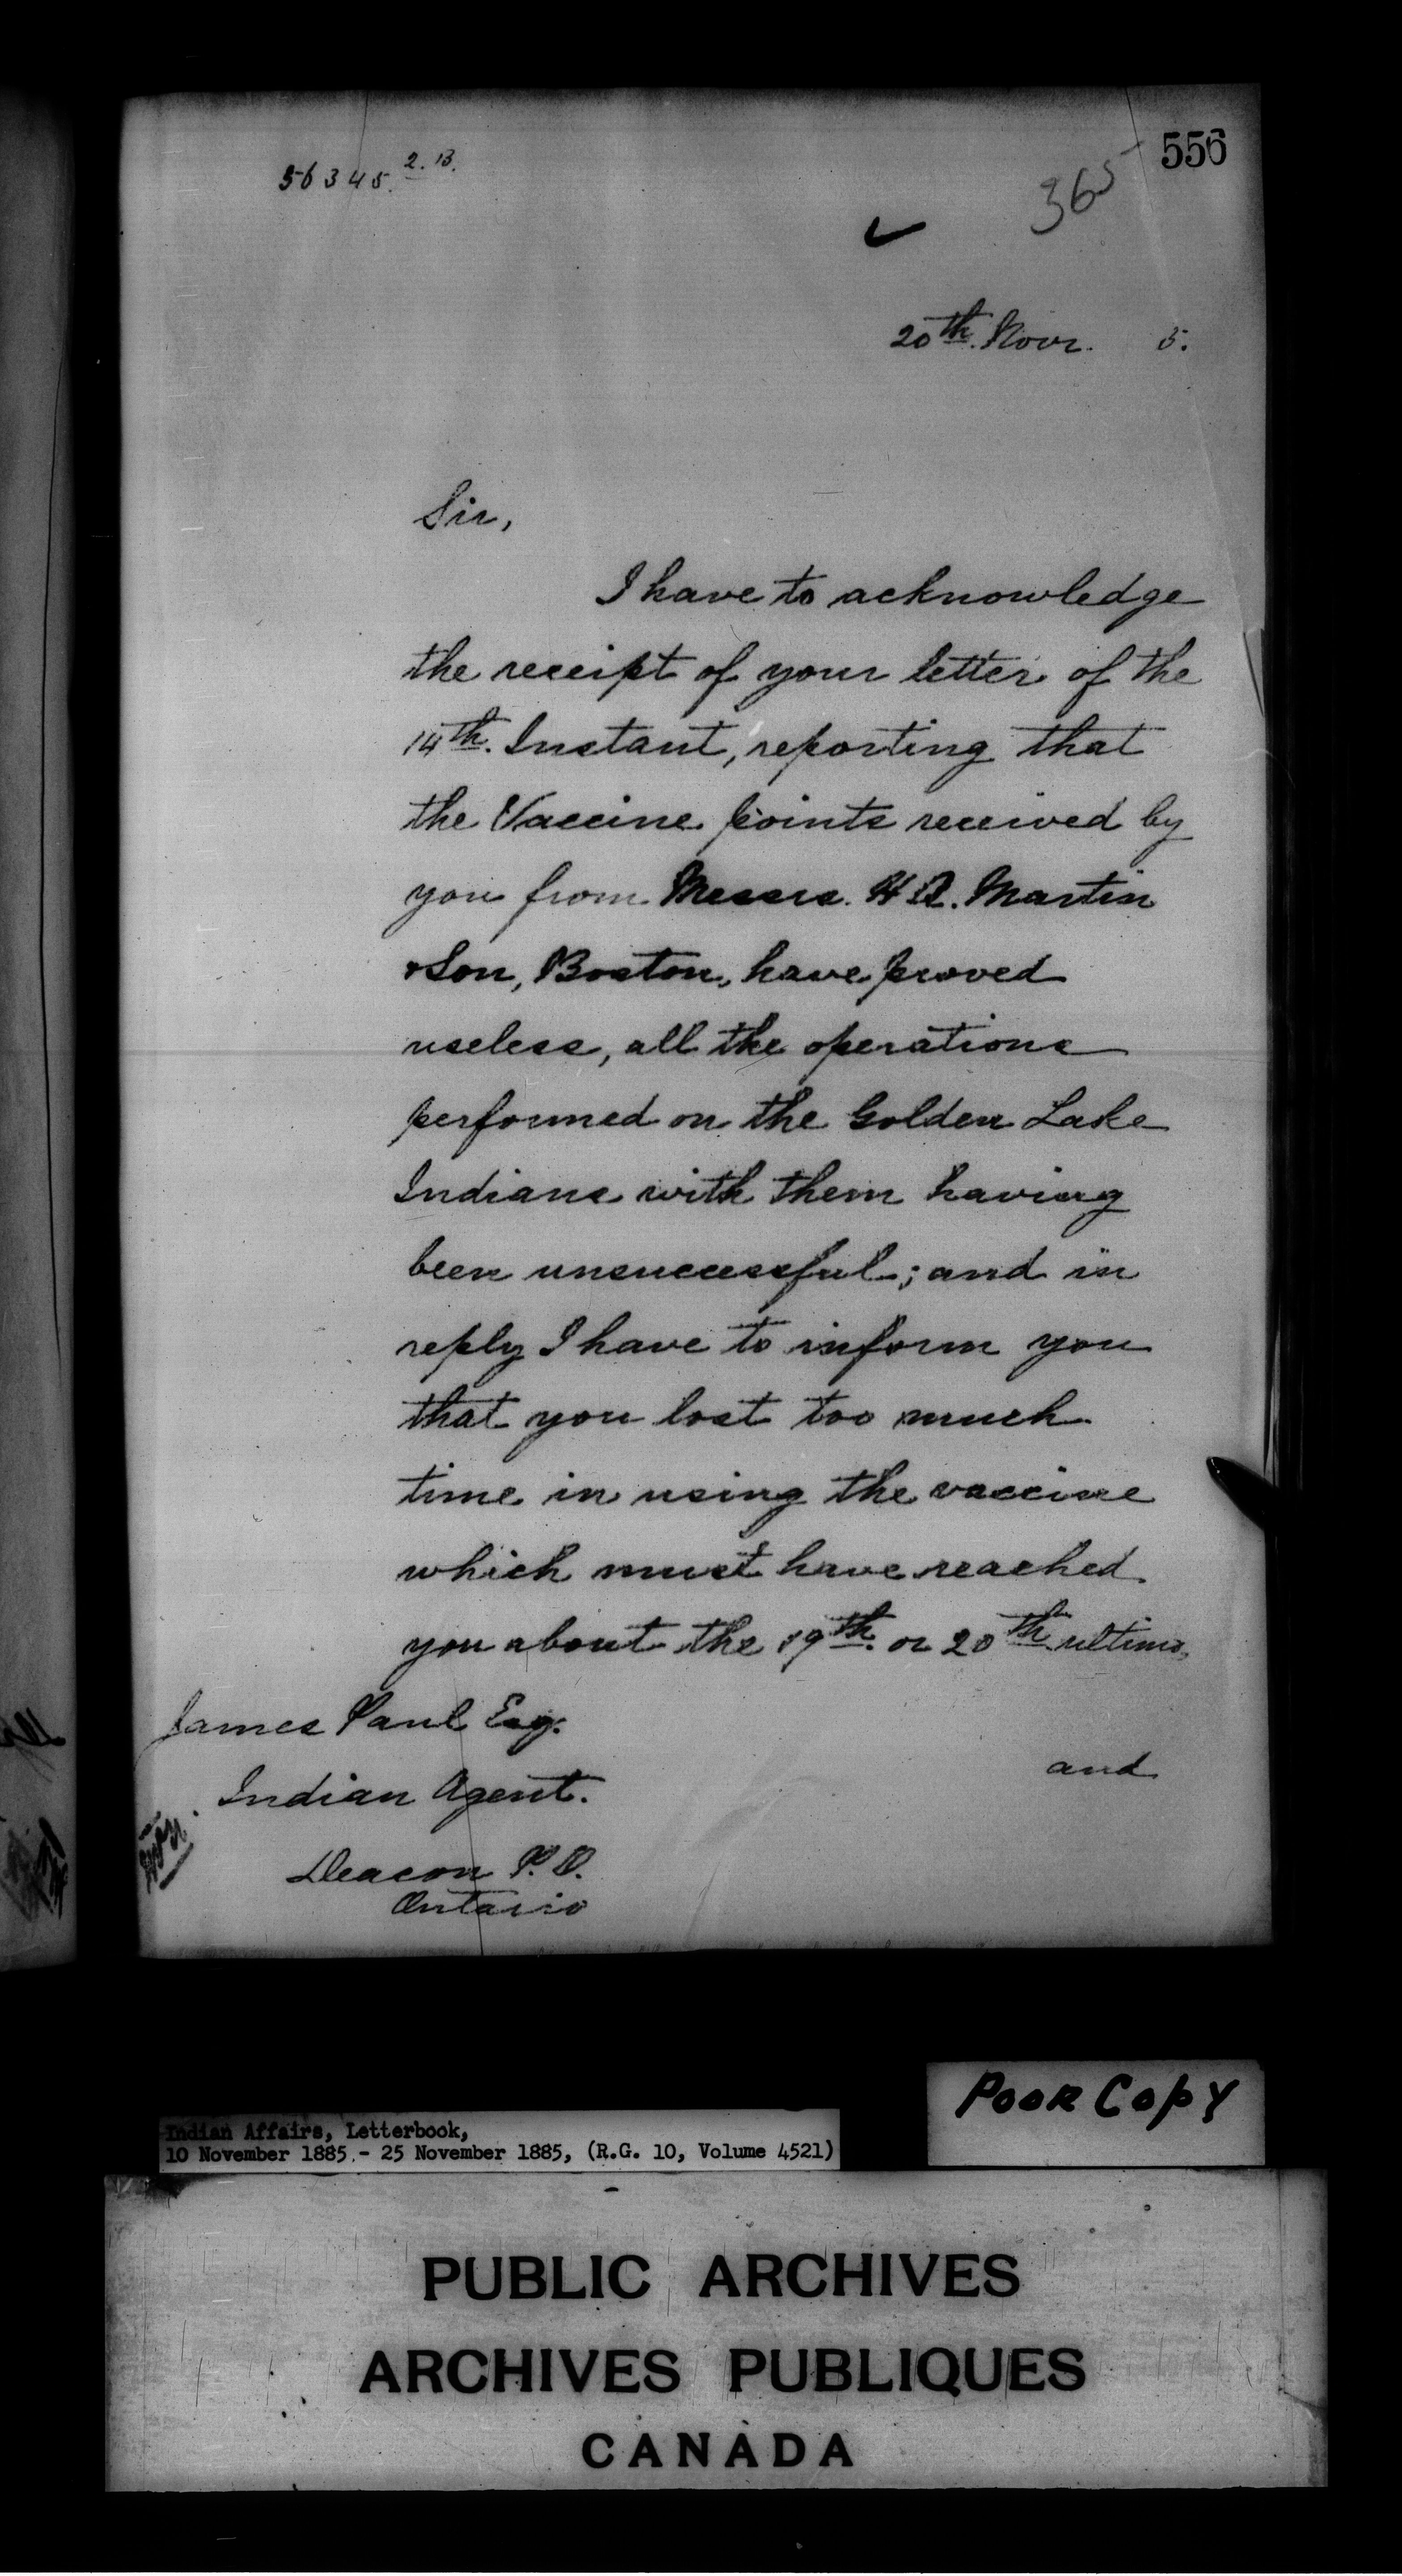 556
56345. 2. B.
365
20th. Novr. 5.
Sir,
I have to acknowledge
the receipt of your letter of the
14th. Instant, reporting that
the Vaccine points received by
you from Messrs. H A. Martin
& Son, Boston, have proved
useless, all the operations
performed on the Golden Lake
Indians with them having
been unsuccessful; and in
reply I have to inform you
that you lost too much
time in using the vaccine
which must have reached
you about the 19th. or 20th ultimo,
and
James Paul Esq.
Indian Agent.
Deacon P. O.
Ontario
Poor Copy
Indian Affairs, Letterbook,
10 November 1885.- 25 November 1885, (R.G. 10, Volume 4521)
PUBLIC ARCHIVES
ARCHIVES PUBLIQUES
CANADA